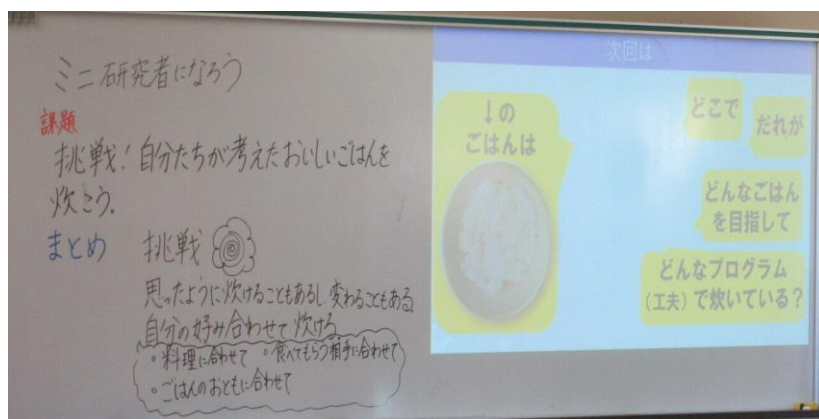 ミニ研究者になろう
課題
挑戦！自分たちが考えたおいしいごはんを
炊こう。
まとめ 挑戦
思ったように炊けることもあるし変わることもある。
自分の好み合わせて炊ける
・料理に合わせて ・食べてもらう相手に合わせて
・ごはんのおともに合わせて
次回は
↓の
ごはんは
どこで
だれが
どんなごはん
を目指して
どんなプログラム
（工夫）で炊いている？